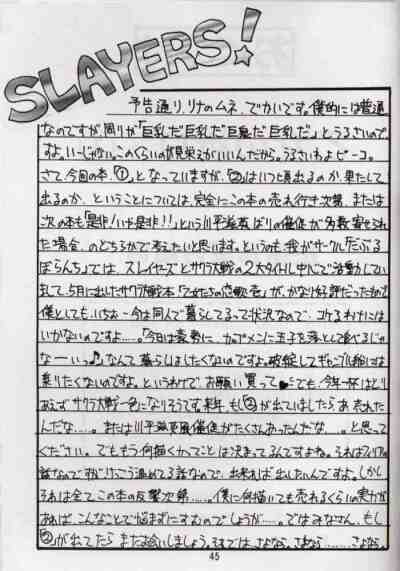 SLAYERS!
予告通り、リナのムネ、でかいです。僕的には普通
なのですが、周りが「巨乳だ巨乳だ巨乳だ巨乳だ」とうるさいので
すよ。いーじゃない。このくらいの方が見栄えがいいんだから。うるさいわよピーコ。
さて、今回の本、①、となっていますが、②はいつ頃出るのか、果たして
出るのか、ということについては、完全にこの本の売れ行き次第、または
次の本も「是非!いや是非!!」という ばりの催促が多数寄せられ
た場合、のどちらかで考えたいと思います。というのも、我がサークル「だぶる
ぼらんち」では、スレイヤーズとサクラ大戦の2大タイトル中心で活動してい
まして、5月に出したサクラ大戦本「乙女たちの 」が、かなり好評だったもので
僕としても、いちおー今は同人で暮らしてるって状況なので、コケるわけには
いかないのですよ……。「今日は豪勢に、カップメンに玉子を落として食べるじゃ
なーいっ♪」なんて暮らしはしたくないのですよ。破綻してギャンブル船には
乗りたくないのですよ。というわけで、お願い買って♥でも、今年一杯はとり
あえずサクラ大戦一色になりそうです。来年、もし②が出ていましたら、あ、売れた
んだな……。または 催促がたくさんあったんだなー……。と思って
ください。でももう何描くかってことは決まってるんですよね。それはフィリアの
話なのですが、けっこう温めてる話なので、出来れば出したいんですよ。しかし
それは全てこの本の反響次第……。僕に何描いても売れるくらいの実力が
あれば、こんなことで悩まずにすむのでしょうが……。ではみなさん、もし
②が出てたらまたお会いしましょう。それでは、さよなら、さよなら……さよなら…。
45